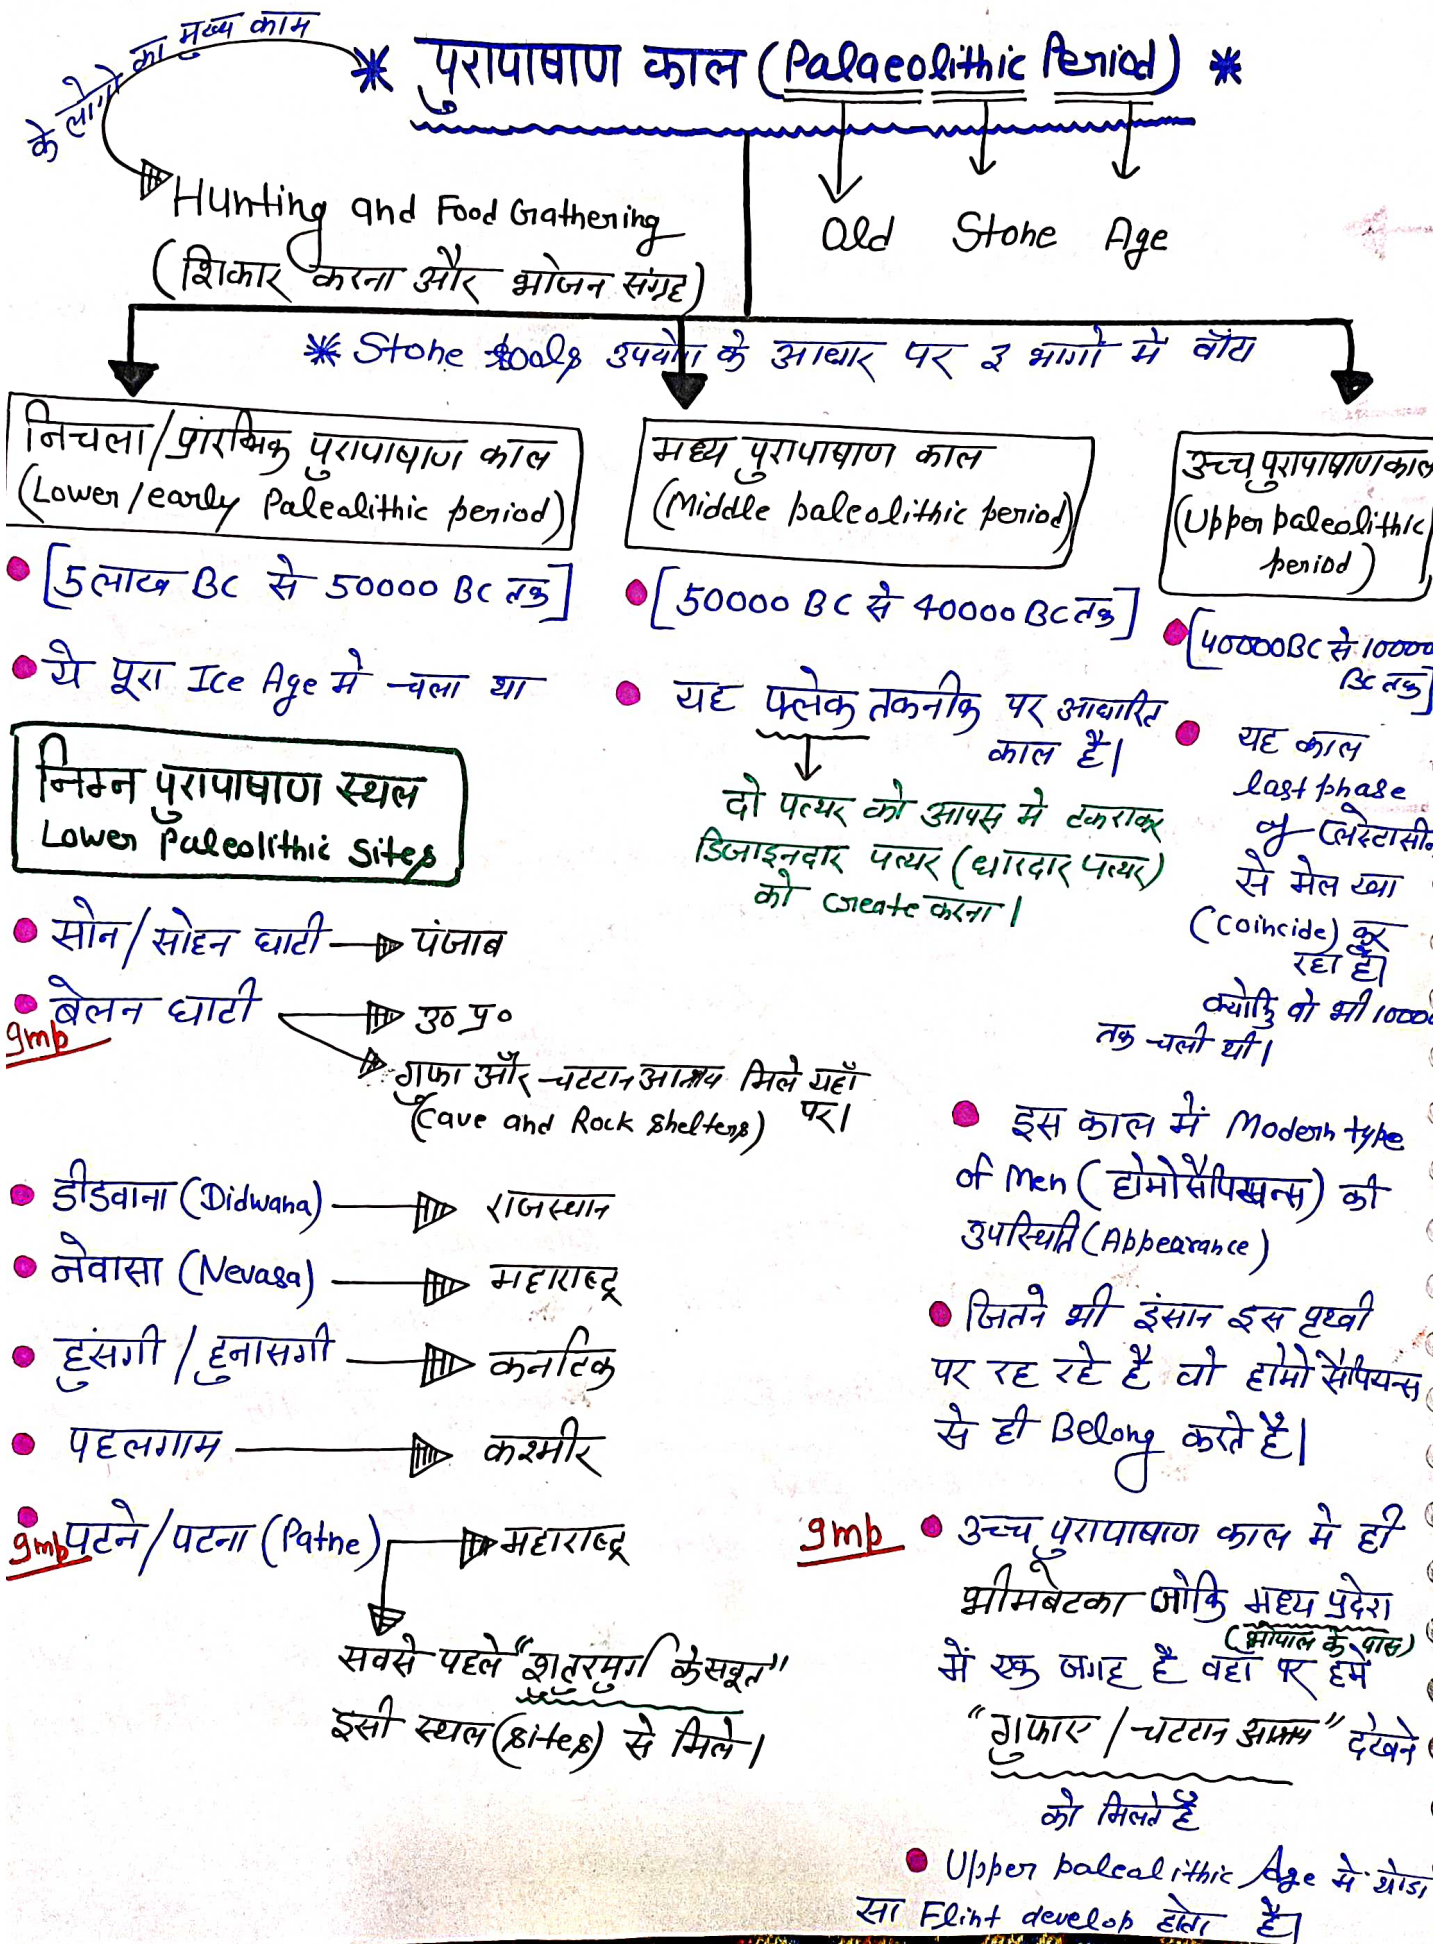 के लोगो का मुख्य काम
* पुरापाषाण काल (Palaeolithic Period) *
Old Stone Age
Hunting and Food Gathering
(शिकार करना और भोजन संग्रह)
* Stone tools उपयोग के आधार पर 3 भागो मे बाँटा
निचला/प्रारम्भिक पुरापाषाण काल
(Lower/early Paleolithic period)
[5 लाख BC से 50000 BC तक]
ये पूरा Ice Age मे चला था
निम्न पुरापाषाण स्थल
Lower Paleolithic Sites
सोन/सोहन घाटी → पंजाब
बेलन घाटी → उ० प्र०
Imp
गुफा और चटटान आश्रय मिले यहाँ पर।
(Cave and Rock Shelters)
डीडवाना (Didwana) → राजस्थान
नेवासा (Nevasa) → महाराष्ट्र
हुंसगी / हुनासगी → कर्नाटक
पहलगाम → कश्मीर
Imp पटने/पटना (Patne) → महाराष्ट्र
सबसे पहले "शुतुरमुर्ग के सबूत"
इसी स्थल (sites) से मिले।
मध्य पुरापाषाण काल
(Middle paleolithic period)
[50000 BC से 40000 BC तक]
यह फ्लेक तकनीक पर आधारित
काल है।
दो पत्थर को आपस मे टकराकर
डिजाइनदार पत्थर (धारदार पत्थर)
को create करना।
उच्च पुरापाषाण काल
(Upper paleolithic
period)
[40000BC से 10000
BC तक]
यह काल
last phase
of प्लेस्टोसीन
से मेल खा
(coincide) कर
रहा है।
क्योकि वो भी 10000
तक चली थी।
इस काल में Modern type
of Men (होमोसैपियन्स) की
उपस्थिति (Appearance)
जितने भी इंसान इस पृथ्वी
पर रह रहे है वो होमो सैपियन्स
से ही Belong करते है।
Imp उच्च पुरापाषाण काल मे ही
भीमबेटका जोकि मध्य प्रदेश
(भोपाल के पास)
में एक जगह है वहाँ पर हमे
"गुफाए / चटटान आश्रय" देखने
को मिलते है
Upper paleolithic Age मे थोडा
सा Flint develop होता है।